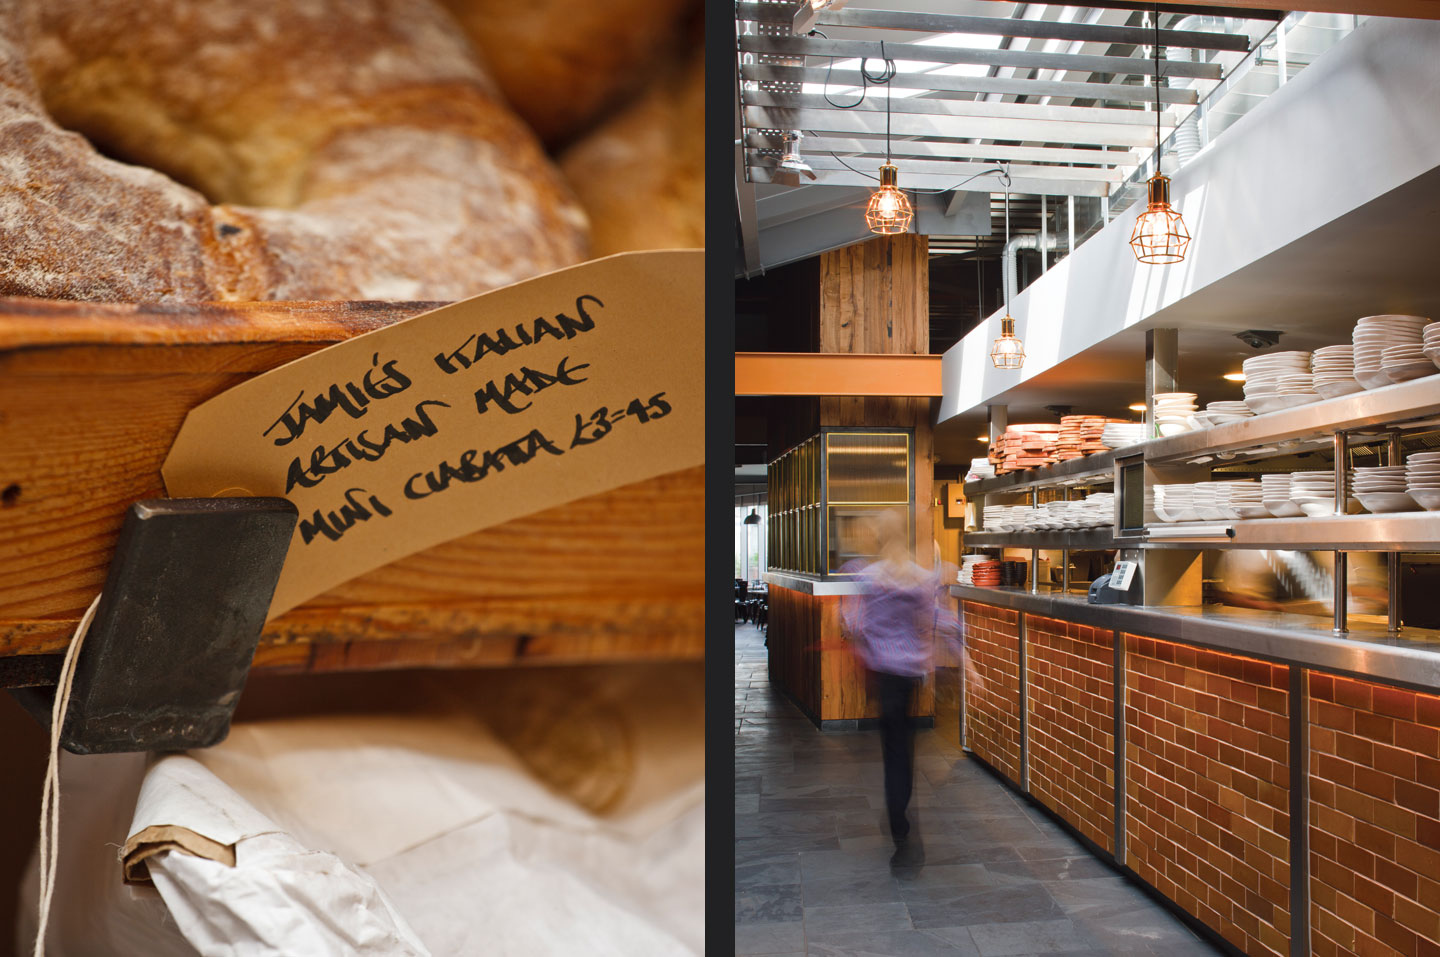 JAMIE'S ITALIAN
ARTISAN MADE
MINI CIABATTA £3=45